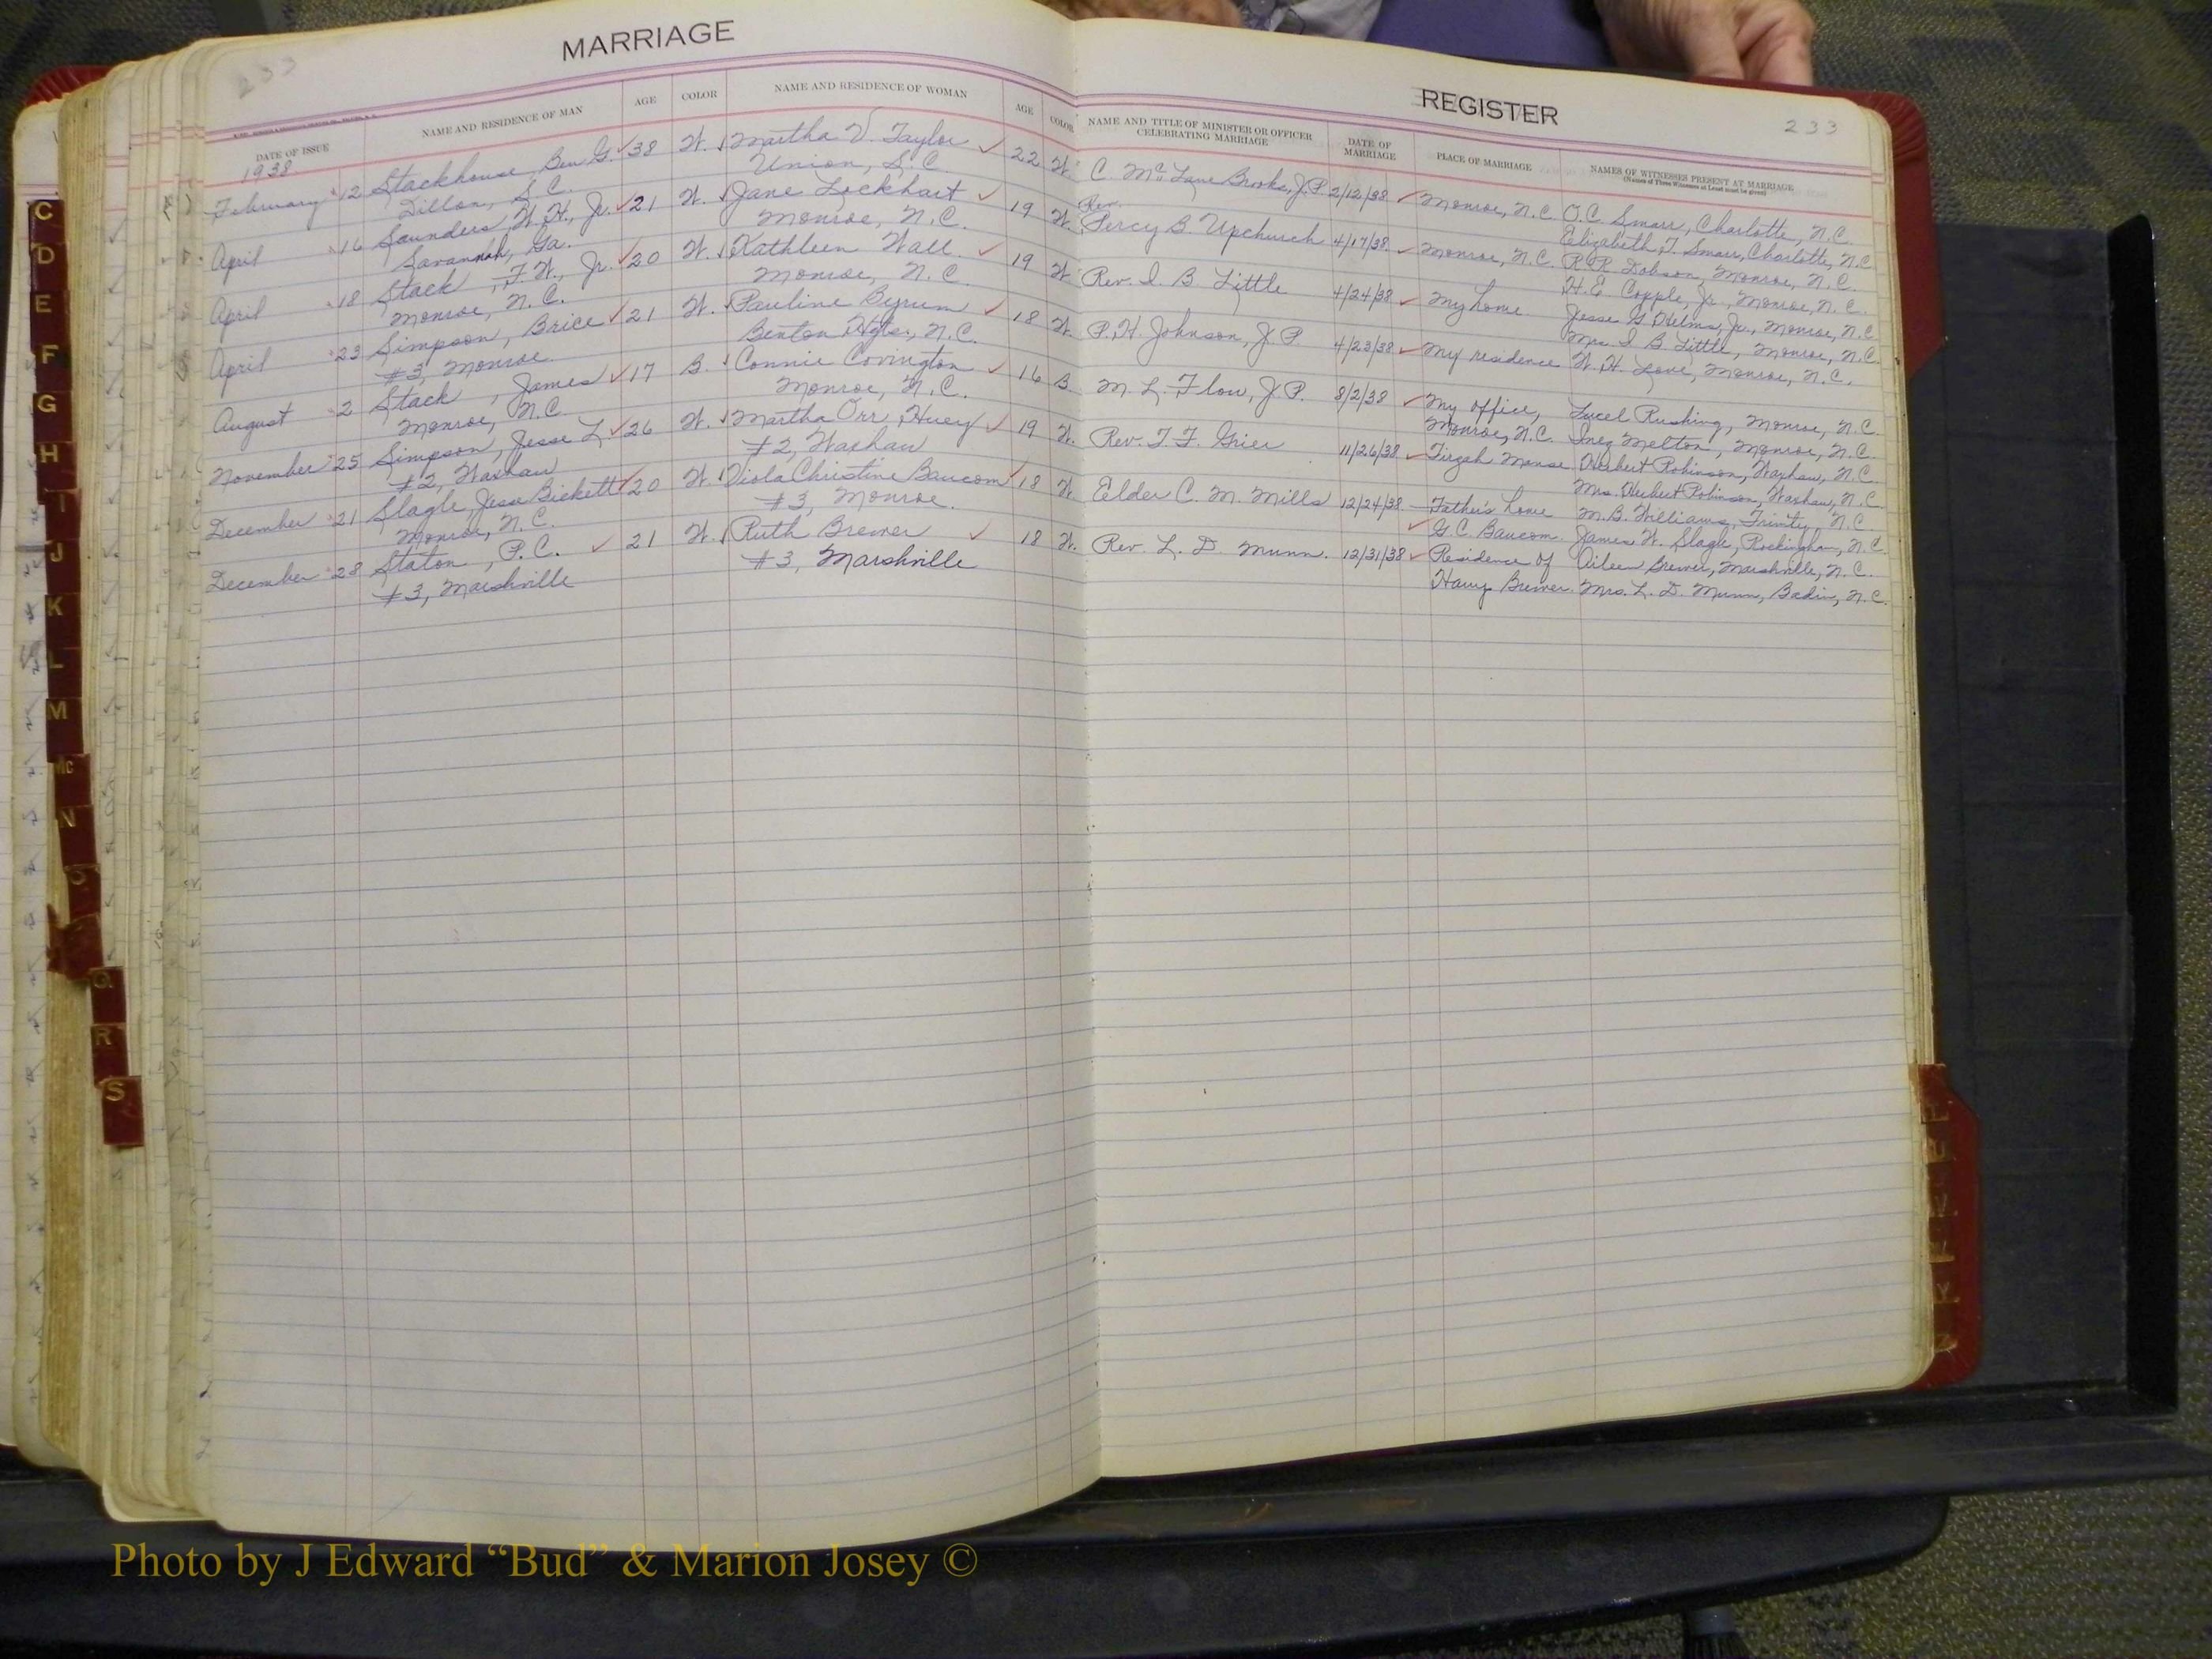 233
MARRIAGE
DATE OF ISSUE NAME AND RESIDENCE OF MAN AGE COLOR NAME AND RESIDENCE OF WOMAN AGE COLOR
1938
February 12 Stackhouse, Ben G. 38 W. Martha V. Taylor 22 W.
Dillon, S.C. Union, S.C.
April 16 Saunders, W.H., Jr. 21 W. Jane Lockhart 19 W.
Savannah, Ga. Monroe, N.C.
April 18 Stack, F.W., Jr. 20 W. Kathleen Wall 19 W.
Monroe, N.C. Monroe, N.C.
April 23 Simpson, Brice 21 W. Pauline Byrum 18 W.
#3, Monroe Benton Hgts., N.C.
August 2 Stack, James 17 B. Connie Covington 16 B.
Monroe, N.C. Monroe, N.C.
November 25 Simpson, Jesse L. 26 W. Martha Orr Huey 19 W.
#2, Waxhaw #2, Waxhaw
December 21 Slagle, Jess Bickett 20 W. Viola Christine Baucom 18 W.
Monroe, N.C. #3, Monroe.
December 28 Staton, P.C. 21 W. Ruth Brewer 18 W.
#3, Marshville #3, Marshville
REGISTER
233
NAME AND TITLE OF MINISTER OR OFFICER CELEBRATING MARRIAGE DATE OF MARRIAGE PLACE OF MARRIAGE NAMES OF WITNESSES PRESENT AT MARRIAGE
(Names of Three Witnesses at Least must be given)
C. Mc Lane Brooks, J.P. 2/12/38 Monroe, N.C. O.C. Smarr, Charlotte, N.C.
Elizabeth T. Smarr, Charlotte, N.C.
Rev.
Percy B. Upchurch 4/17/38 Monroe, N.C. R.R. Dobson, Monroe, N.C.
H.E. Copple, Jr., Monroe, N.C.
Rev. I. B. Little 4/24/38 My home Jesse G. Helms, Jr., Monroe, N.C.
Mrs. I. B. Little, Monroe, N.C.
P.H. Johnson, J.P. 4/23/38 My residence W. H. Love, Monroe, N.C.
M. L. Flow, J.P. 8/2/38 My office, Lucel Rushing, Monroe, N.C.
Monroe, N.C. Inez Melton, Monroe, N.C.
Rev. T. F. Grier 11/26/38 Tirzah Manse Herbert Robinson, Waxhaw, N.C.
Mrs. Herbert Robinson, Waxhaw, N.C.
Elder C. M. Mills 12/24/38 Father's home M.B. Williams, Trinity, N.C.
G.C. Baucom James W. Slagle, Rockingham, N.C.
Rev. L. D. Munn. 12/31/38 Residence of Oileen Brewer, Marshville, N.C.
Harry Brewer. Mrs. L. D. Munn, Badin, N.C.
C
D
E
F
G
H
I
J
K
L
M
Mc
N
O
Q
R
S
Photo by J Edward “Bud” & Marion Josey ©